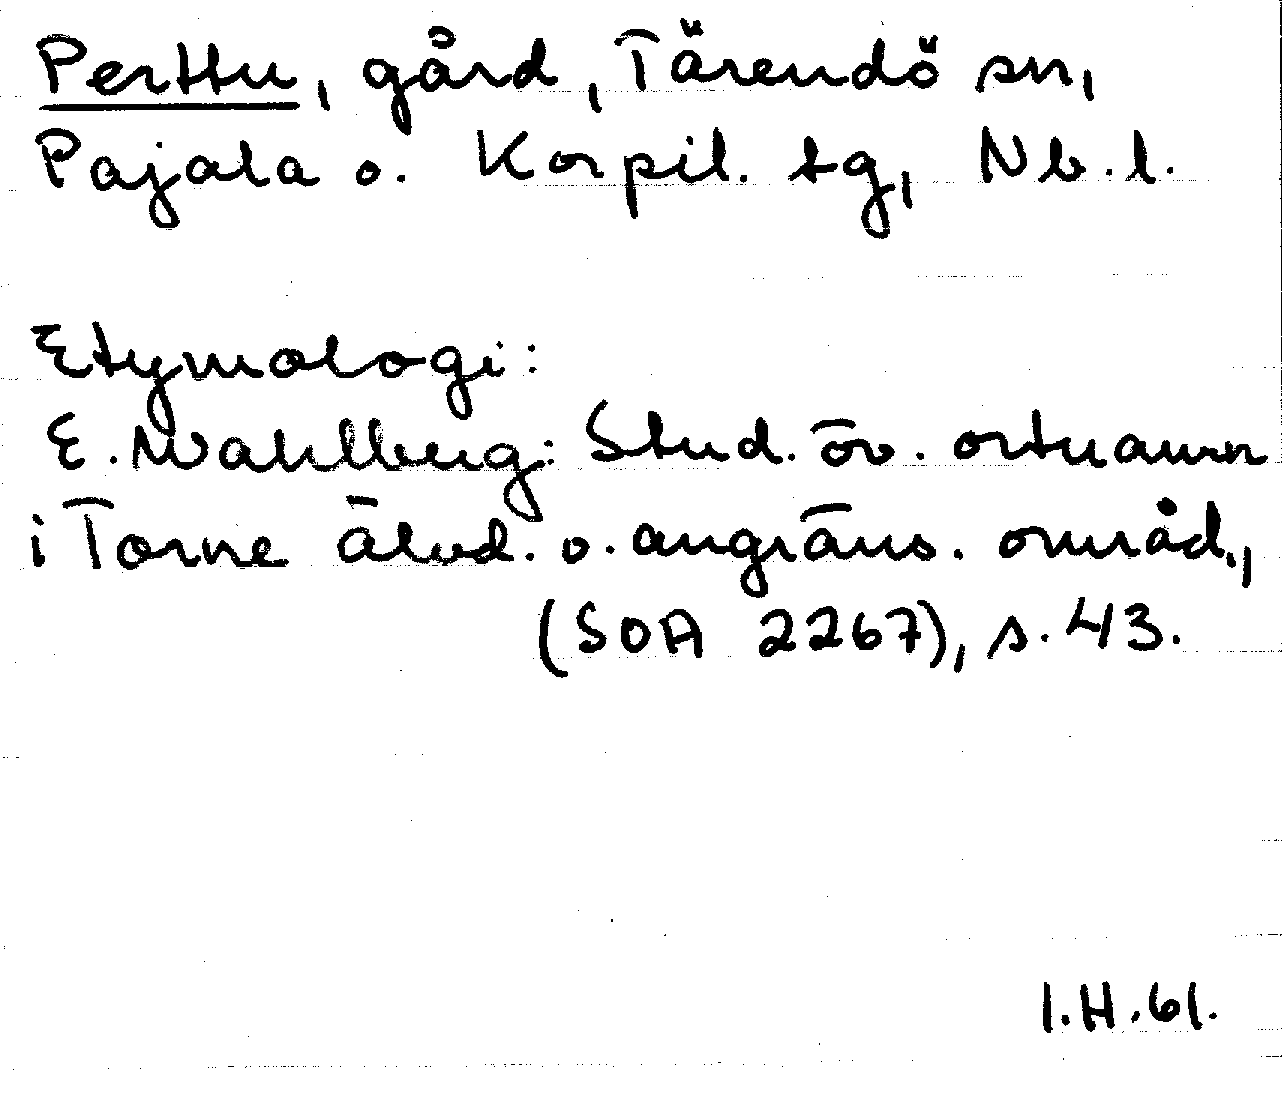 Perttu, gård, Tärendö sn,
Pajala o. Korpil. tg, Nb.l.
Etymologi:
E. Wahlberg: Stud. öv. ortnamn
i Torne älvd. o. angräns. områd.,
(SOA 2267), s. 43.
I.H.61.